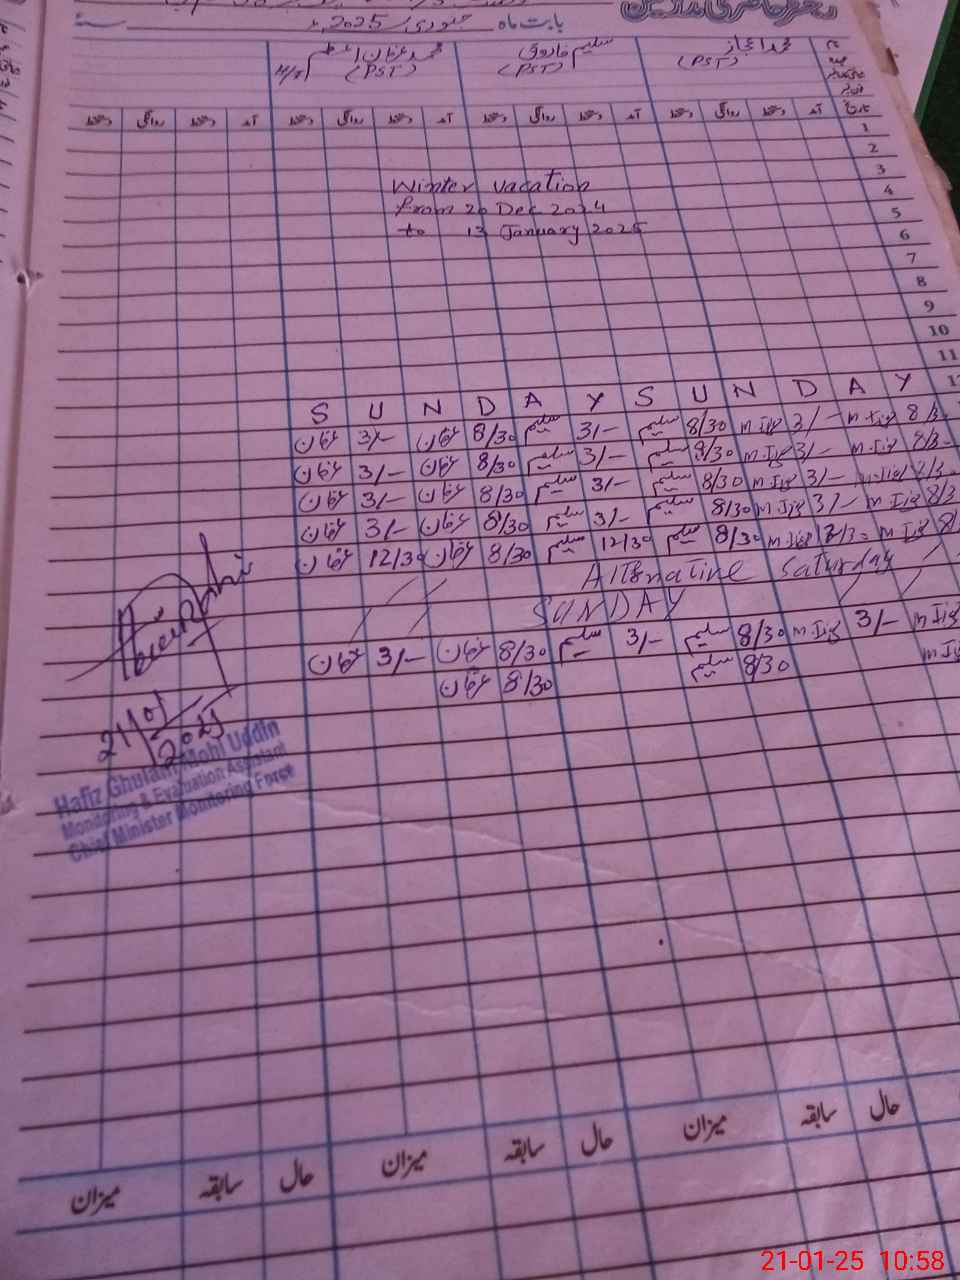 بابت ماہ جنوری 2025ء
محمد اعجاز سلیم فاروق محمد عرفان اعظم
(PST) (PST) (PST) H/T
تاریخ آمد دستخط روانگی دستخط آمد دستخط روانگی دستخط آمد دستخط روانگی دستخط آمد دستخط روانگی دستخط
1
2
3
Winter vacation
4
from 20 Dec 2024
5
to 13 January 2025
6
7
8
9
10
11
S U N D A Y S U N D A Y
عرفان 3/- عرفان 8/30 سلیم 3/- سلیم 8/30 m Ijz 3/- m Ijz 8/3
عرفان 3/- عرفان 8/30 سلیم 3/- سلیم 8/30 m Ijz 3/- m Ijz 8/3
عرفان 3/- عرفان 8/30 سلیم 3/- سلیم 8/30 m Ijz 3/-
عرفان 3/- عرفان 8/30 سلیم 3/- سلیم 8/30 m Ijz 3/- m Ijz 8/3
عرفان 12/30 عرفان 8/30 سلیم 12/30 سلیم 8/30 m Ijz m Ijz 8/
Alternative Saturday
SUNDAY
عرفان 3/- عرفان 8/30 سلیم 3/- سلیم 8/30 m Ijz 3/- m Ijz
عرفان 8/30 سلیم 8/30 m Ijz
21/01/2025
Hafiz Ghulam Mohi Uddin
Monitoring & Evaluation Assistant
Chief Minister Monitoring Force
حال سابقہ میزان حال سابقہ میزان حال سابقہ میزان
21-01-25 10:58